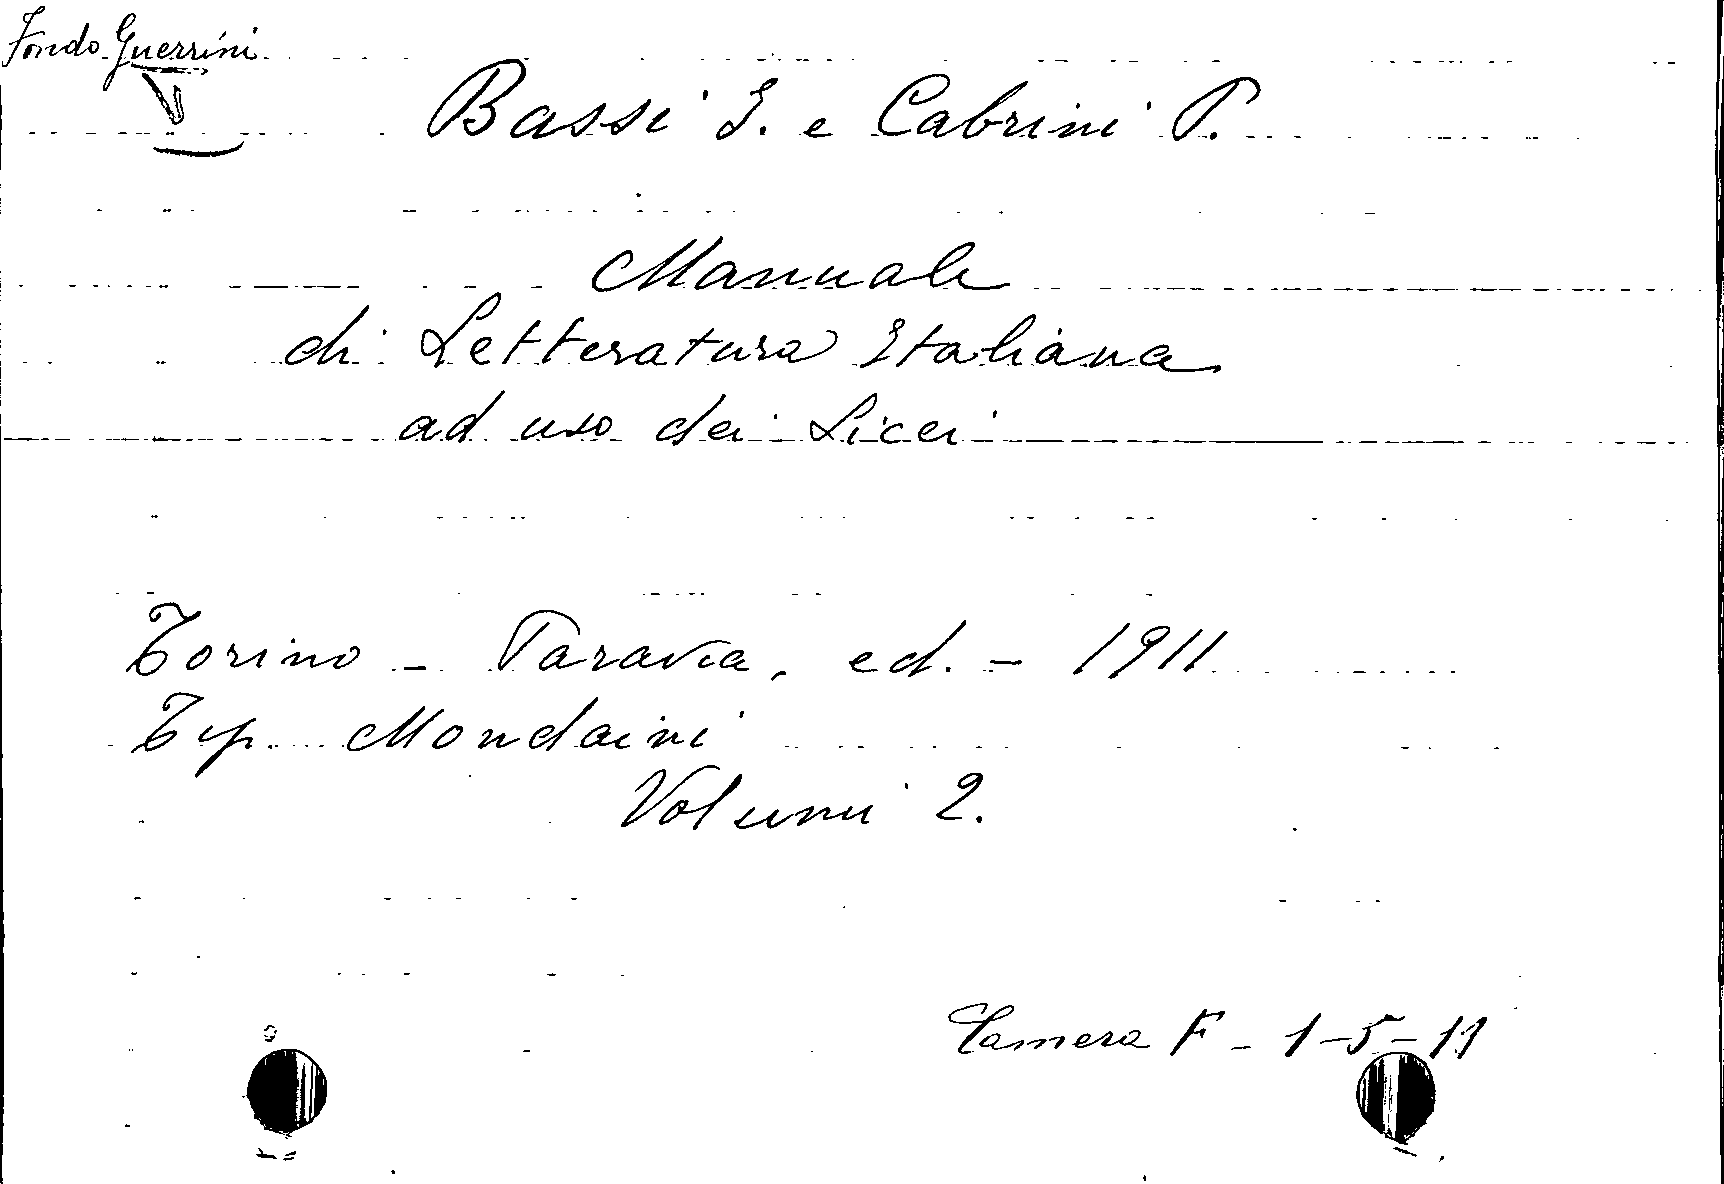 Fondo Guerrini
Bassi I. e Cabrini P.
Manuale
di Letteratura Italiana
ad uso dei Licei
Torino - Paravia, ed. - 1911
Tip. Mondaini
Volumi 2.
Camera F - 1-5-11